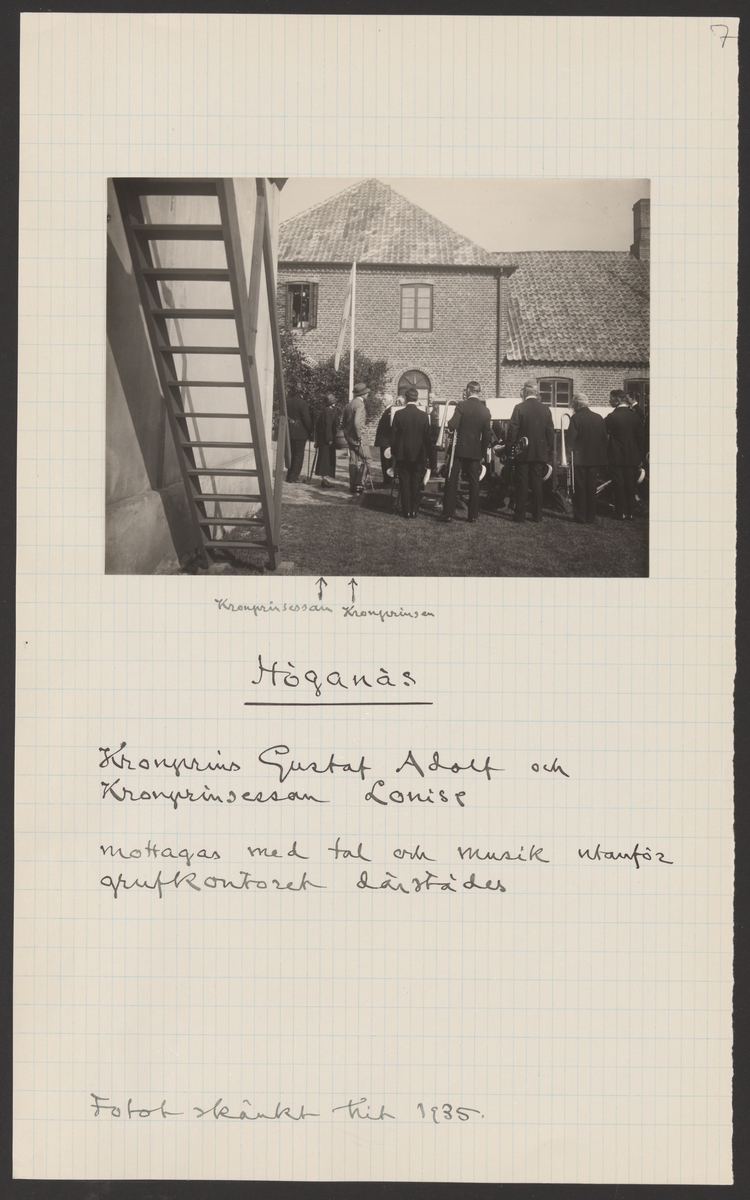 7
Kronprinsessan Kronprinsen
Höganäs
Kronprins Gustaf Adolf och
Kronprinsessan Louise
mottagas med tal och musik utanför
grufkontoret därstädes
Fotot skänkt hit 1935.